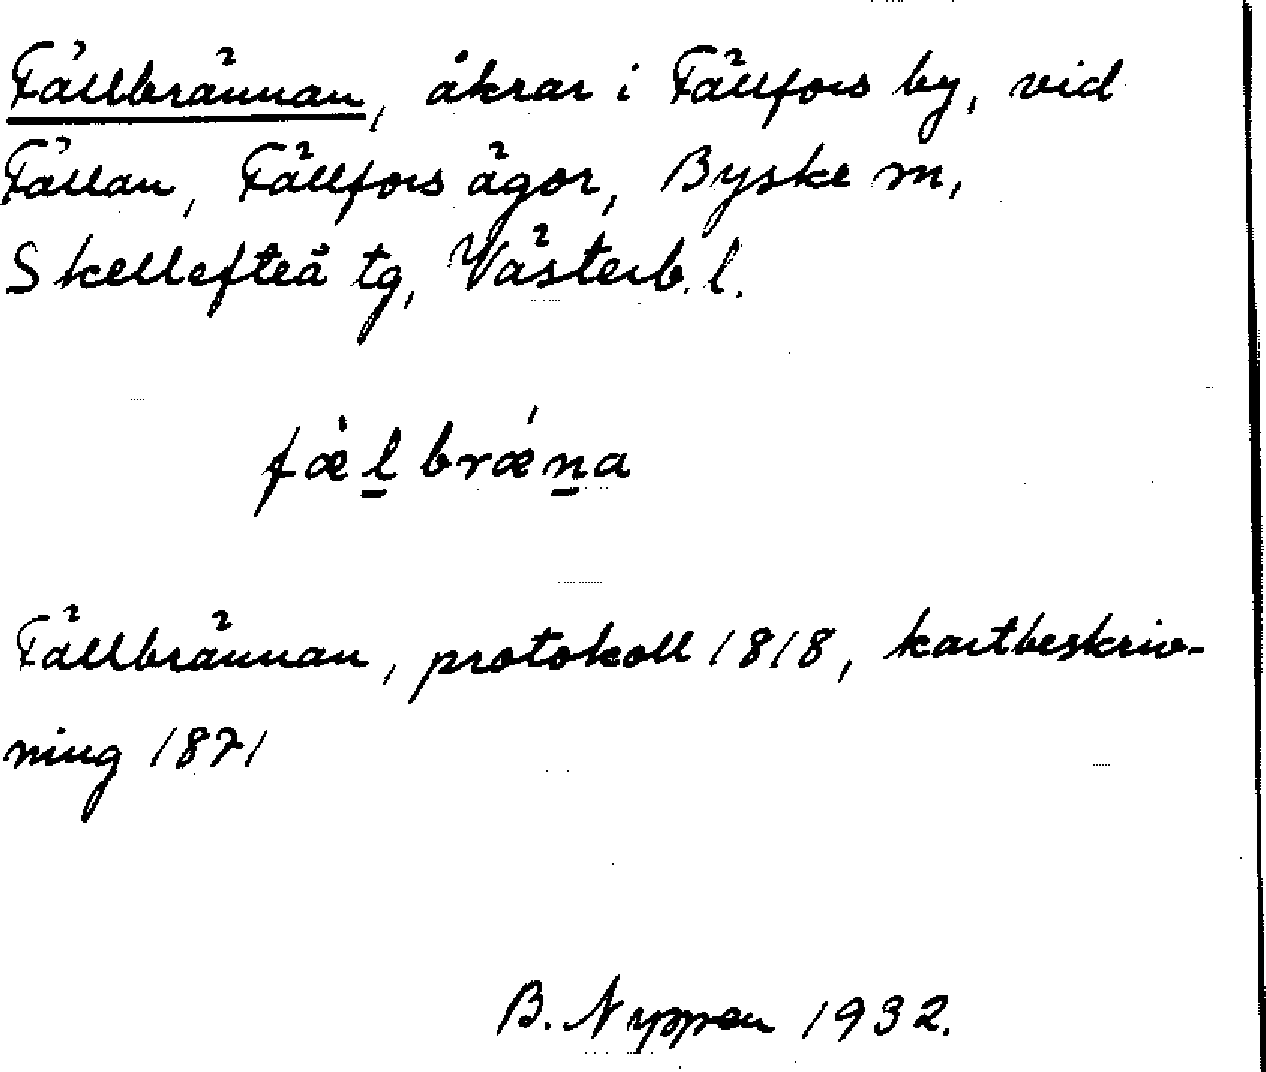 Fällbrännan, åkrar i Fällfors by, vid
Fällan, Fällfors ägor, Byske sn,
Skellefteå tg, Västerb. l.
fæ̀l̲brǽn̲a
Fällbrännan, protokoll 1818, kartbeskriv-
ning 1871
B. Nyppen 1932.